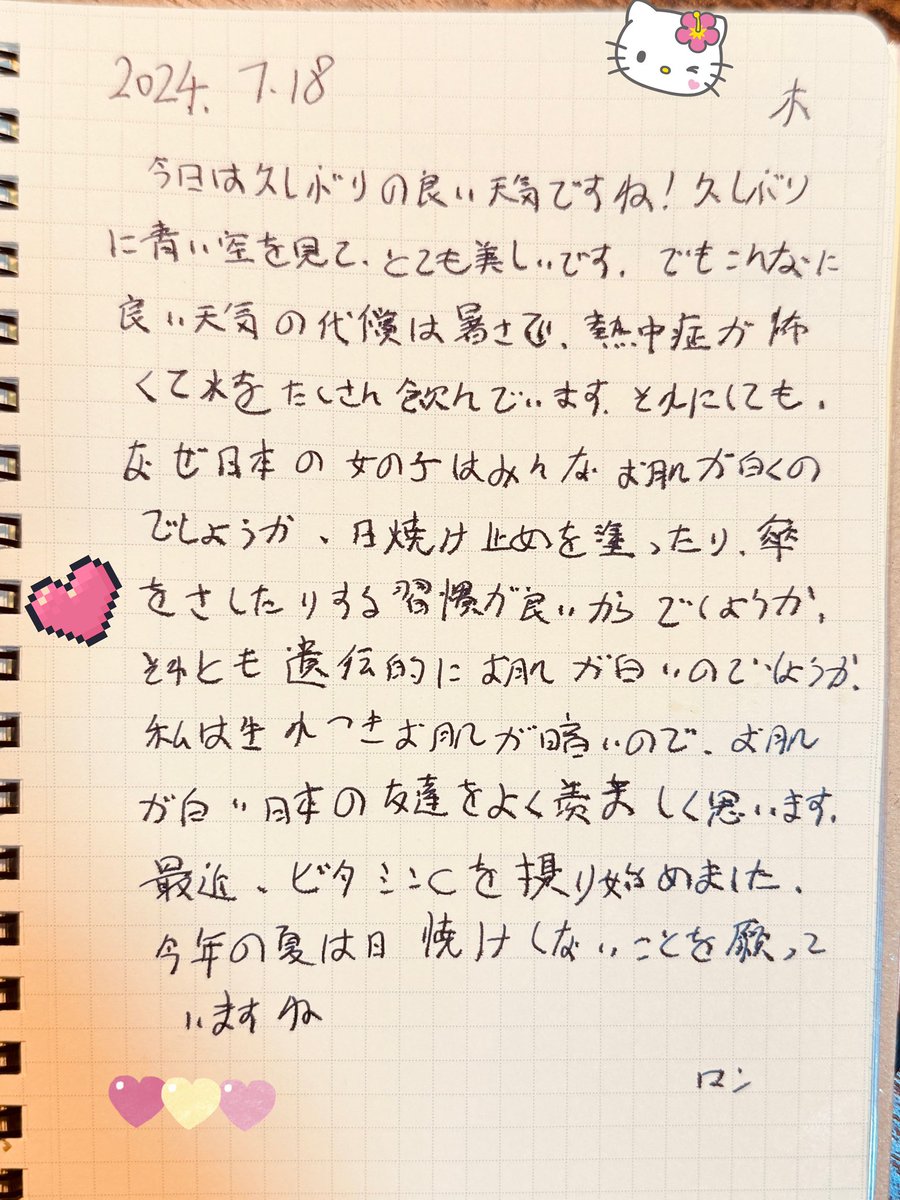 2024. 7.18
木
今日は久しぶりの良い天気ですね!久しぶり
に青い空を見て、とても美しいです。でもこんなに
良い天気の代償は暑さで、熱中症が怖
くて水をたくさん飲んでいます。それにしても、
なぜ日本の女の子はみんなお肌が白くの
でしょうか、日焼け止めを塗ったり、傘
をさしたりする習慣が良いからでしょうか、
それとも遺伝的にお肌が白いのでしょうか、
私は生れつきお肌が暗いので、お肌
が白い日本の友達をよく羨ましく思います。
最近、ビタミンCを摂り始めました、
今年の夏は日焼けしないことを願って
いますね
ロン